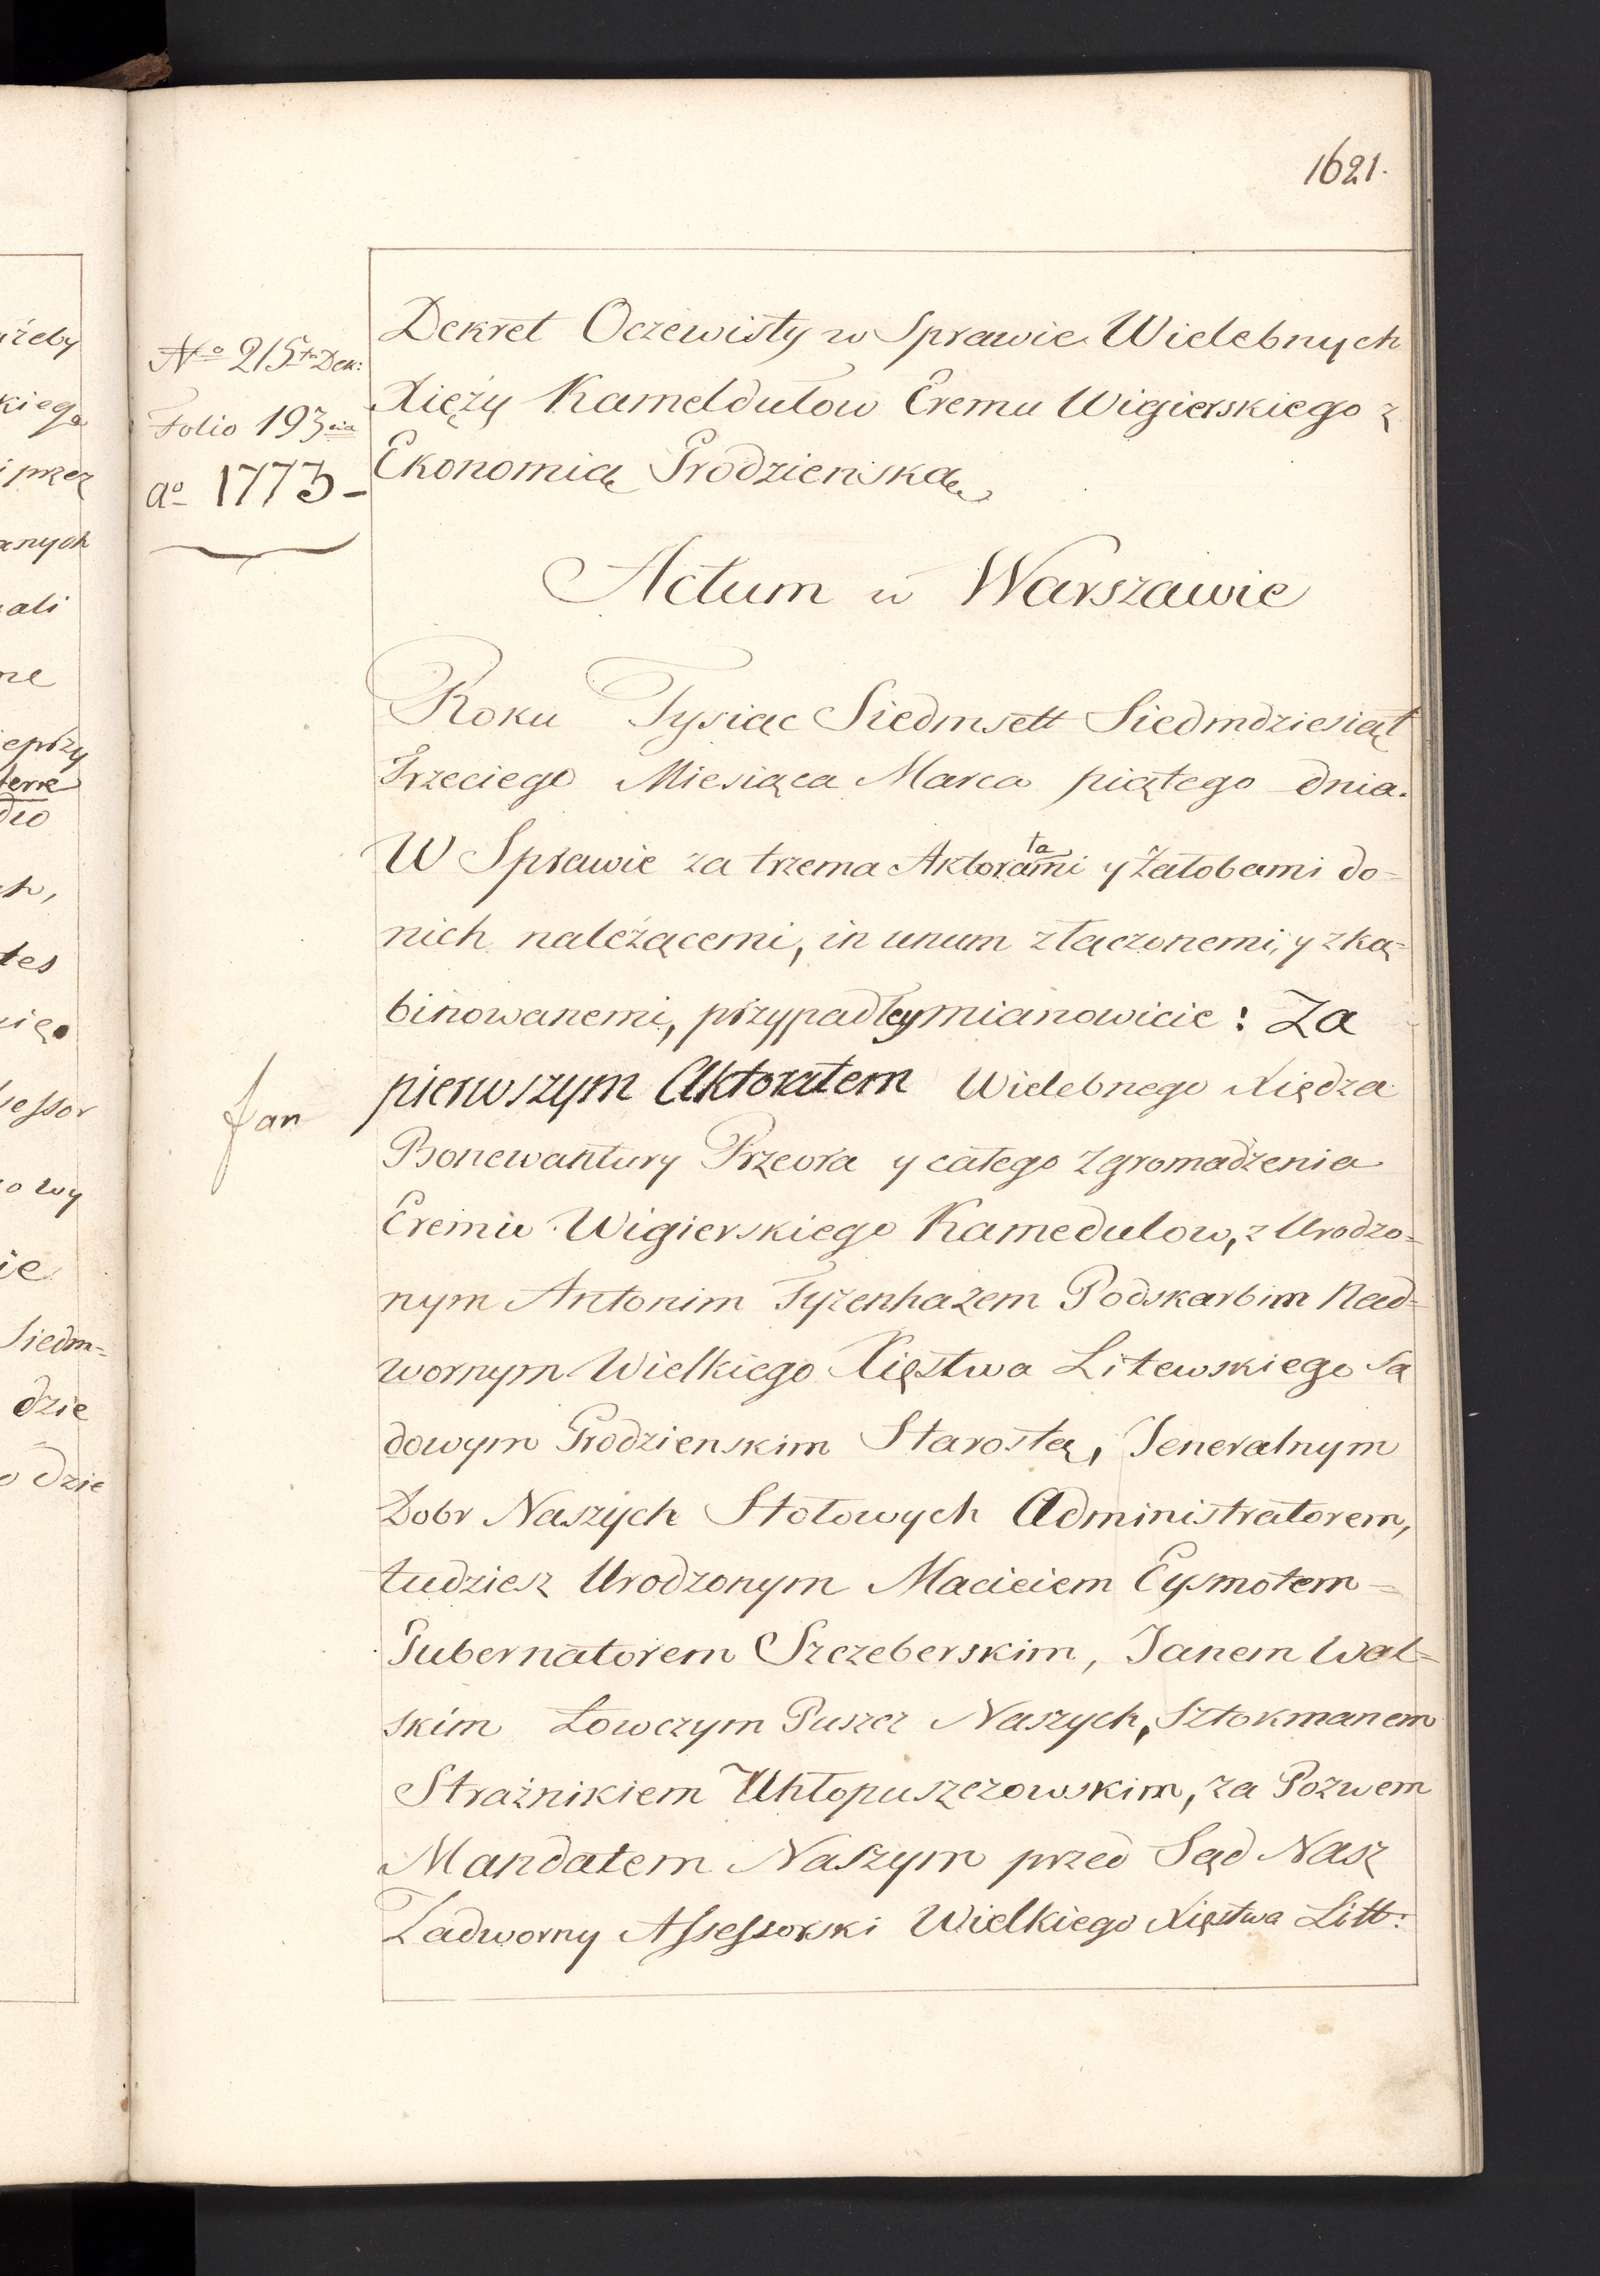 1621.
No 215to Dek:
Folio 193cia
ao 1773 -
Dekret Oczewisty w Sprawie Wielebnych
Xięży Kameldułow Eremu Wigierskiego z
Ekonomią Grodzienską
Actum w Warszawie
Roku Tysiąc Siedmsett Siedmdziesiąt
Trzeciego Miesiąca Marca piątego dnia.
W Sprawie za trzema Aktoratami y Załobami do=
nich należącemi, in unum złączonemi, y zką=
binowanemi, przypadłey mianowicie: Za
pierwszym Aktoratem Wielebnego Xiędza
Bonewantury Przeora y całego Zgromadzenia
Eremu Wigierskiego Kamedulow, z Urodzo=
nym Antonim Tyzenhazem Podskarbim Nad=
wornym Wielkiego Xięstwa Litewskiego Są
dowym Grodzienskim Starostą, Jeneralnym
Dobr Naszych Stołowych Administratorem,
tudziesz Urodzonym Macieiem Eysmotem=
Gubernatorem Szczeberskim, Janem Wol=
skim Łowczym Puszcz Naszych, Sztokmanem
Strażnikiem Chłopuszczowskim, za Pozwem
Mandatem Naszym przed Sąd Nasz
Zadworny Assessorski Wielkiego Xięstwa Litt:
Jan
iżeby
kiego
i przez
anych
ali
ne
terre
tes
sessor
o wy
ie
Siedm=
dzie
o dzie